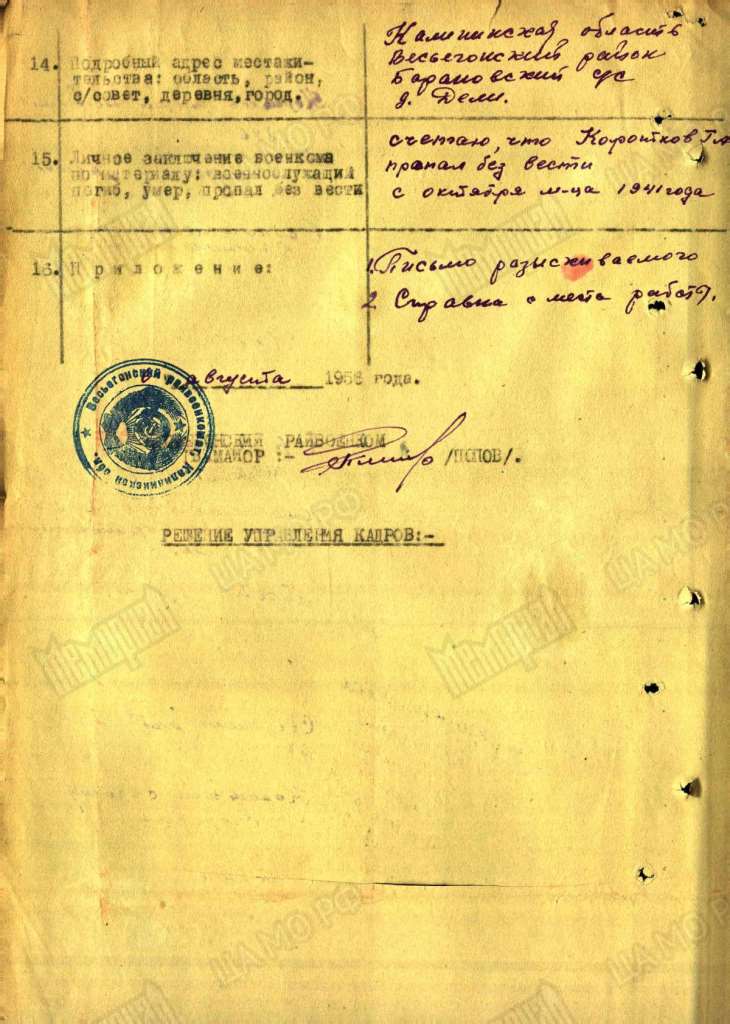 14. Подробный адрес местажи-
тельства: область, район,
с/совет, деревня, город.
Калининская область
Весьегонский район
Барановский с/с
д. Дели.
15. Личное заключение военкома
по материалу: военнослужащий
погиб, умер, пропал без вести
считаю, что Коротков
пропал без вести
с октября м-ца 1941 года
16. Приложение:
1. Письмо разыскиваемого
2. Справка с места работы.
августа 1956 года.
Весьегонский райвоенкомат Калининской обл.
РАЙВОЕНКОМ
МАЙОР :- /ПОПОВ/.
РЕШЕНИЕ УПРАВЛЕНИЯ КАДРОВ:-
Мемориал
ЦАМО РФ